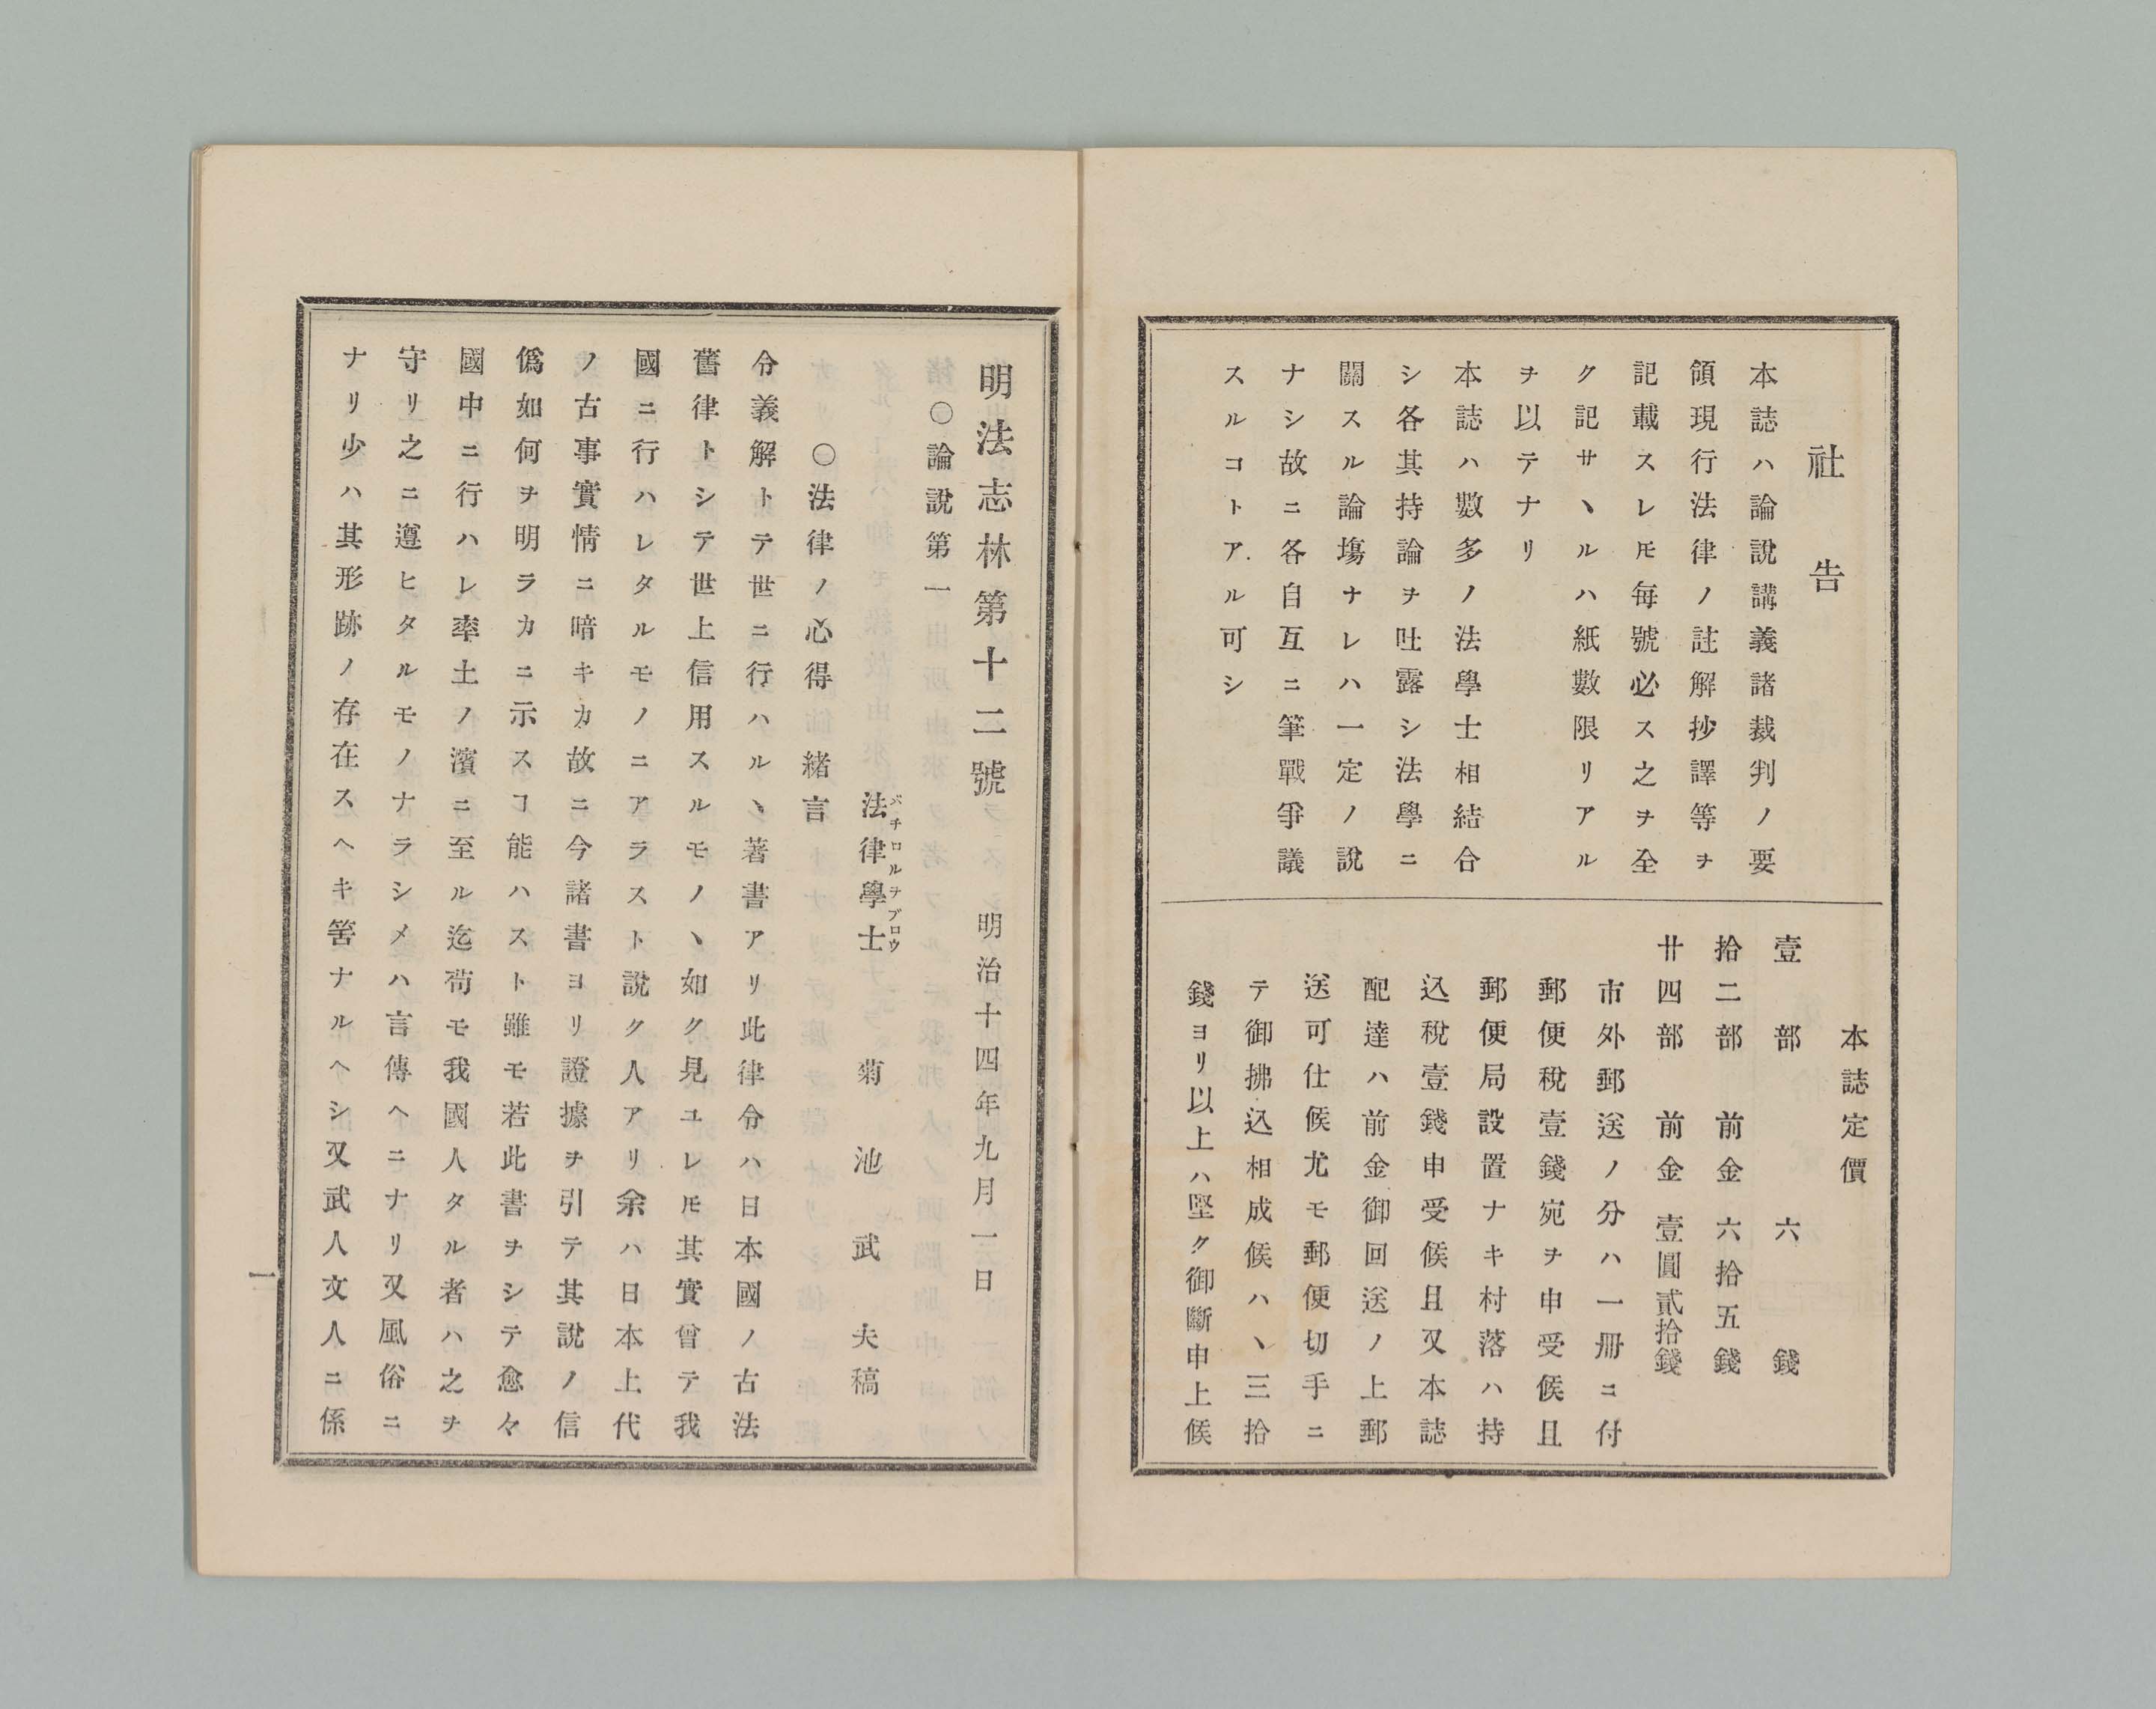 社告
本誌ハ論說講義諸裁判ノ要
領現行法律ノ註解抄譯等ヲ
記載スレ𪜈每號必ス之ヲ全
ク記サヽルハ紙數限リアル
ヲ以テナリ
本誌ハ數多ノ法學士相結合
シ各其持論ヲ吐露シ法學ニ
關スル論塲ナレハ一定ノ說
ナシ故ニ各自互ニ筆戰爭議
スルコトアル可シ
本誌定價
壹部 六錢
拾二部 前金 六拾五錢
廿四部 前金 壹圓貳拾錢
市外郵送ノ分ハ一冊ニ付
郵便稅壹錢宛ヲ申受候且
郵便局設置ナキ村落ハ持
込稅壹錢申受候且又本誌
配達ハ前金御回送ノ上郵
送可仕候尤モ郵便切手ニ
テ御拂込相成候ハヽ三拾
錢ヨリ以上ハ堅ク御斷申上候
明法志林第十二號 明治十四年九月一日
○論說第一
法律學士 菊池武夫稿
バチロルヲブロウ
○法律ノ心得 緒言
令義解トテ世ニ行ハルヽ著書アリ此律令ハ日本國ノ古法
舊律トシテ世上信用スルモノヽ如ク見ユレ𪜈其實曾テ我
國ニ行ハレタルモノニアラスト說ク人アリ余ハ日本上代
ノ古事實情ニ暗キカ故ニ今諸書ヨリ證據ヲ引テ其說ノ信
僞如何ヲ明ラカニ示スヿ能ハスト雖モ若此書ヲシテ愈々
國中ニ行ハレ率土ノ濱ニ至ル迄苟モ我國人タル者ハ之ヲ
守リ之ニ遵ヒタルモノナラシメハ言傳ヘニナリ又風俗ニ
ナリ少ハ其形跡ノ存在スヘキ筈ナルヘシ又武人文人ニ係
一